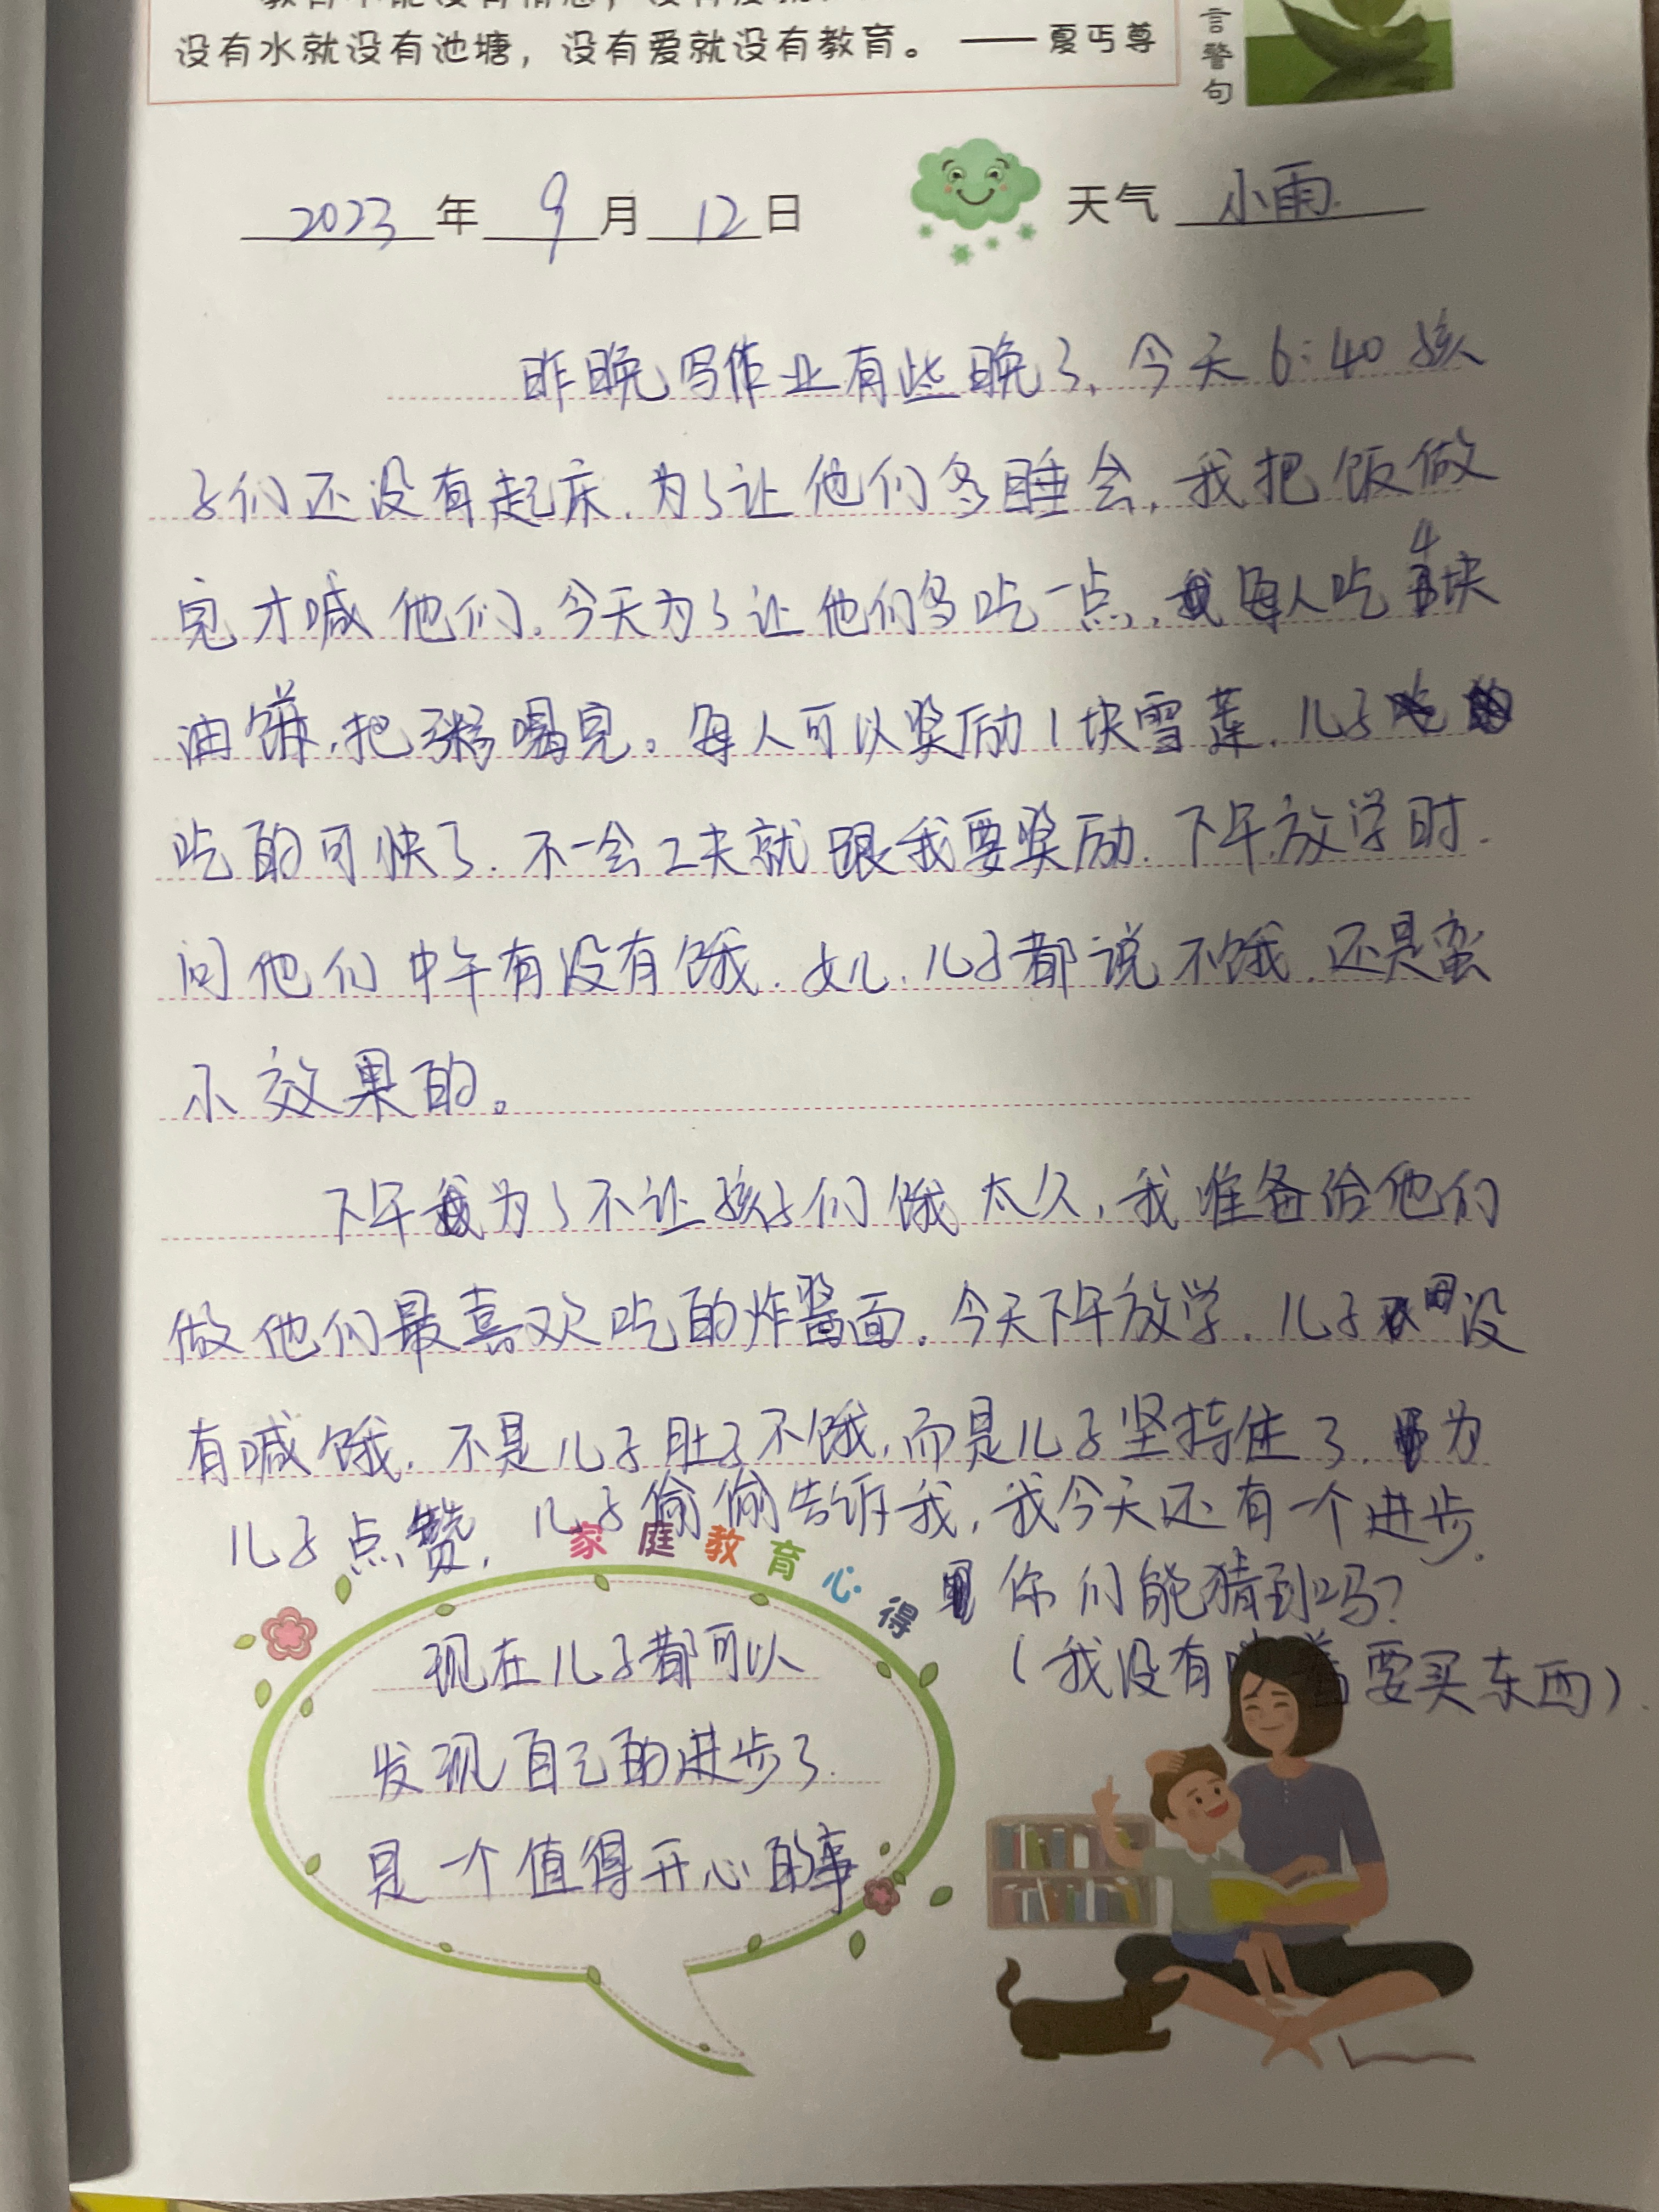 没有水就没有池塘，没有爱就没有教育。 —— 夏丏尊
言警句
2023年9月12日 天气 小雨.
昨晚写作业有些晚了, 今天6:40孩
子们还没有起床. 为了让他们多睡会, 我把饭做
完才喊他们. 今天为了让他们多吃一点, 每人吃4块
油饼, 把粥喝完。每人可以奖励1块雪莲. 儿子
吃的可快了. 不一会工夫就跟我要奖励. 下午放学时.
问他们中午有没有饿. 女儿. 儿子都说不饿. 还是蛮
有效果的。
下午为了不让孩子们饿太久, 我准备给他们
做他们最喜欢吃的炸酱面. 今天下午放学. 儿子没
有喊饿. 不是儿子肚子不饿, 而是儿子坚持住了. 为
儿子点赞, 儿子偷偷告诉我, 我今天还有一个进步.
你们能猜到吗?
(我没有 要买东西).
家庭教育心得
现在儿子都可以
发现自己的进步了.
是一个值得开心的事